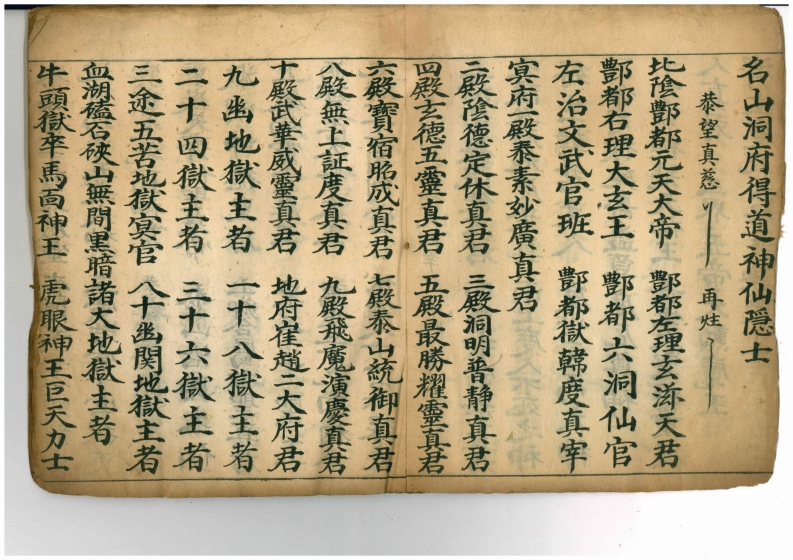 名山洞府得道神仙隐士
恭望真慈 再炷
北陰酆都元天大帝 酆都左理玄滋天君
酆都右理大玄王 酆都六洞仙官
左治文武官班 酆都獄韓度真宰
冥府一殿泰素妙廣真君
二殿陰德定休真君 三殿洞明普靜真君
四殿玄德五靈真君 五殿最勝耀靈真君
六殿寶宿昭成真君 七殿泰山統御真君
八殿無上証度真君 九殿飛魔演慶真君
十殿武華威靈真君 地府崔趙二大府君
九幽地獄主者 一十八獄主者
二十四獄主者 三十六獄主者
三途五苦地獄冥官 八十幽関地獄主者
血湖磕石硤山無間黑暗諸大地獄主者
牛頭獄卒馬面神王 虎眼神王巨天力士